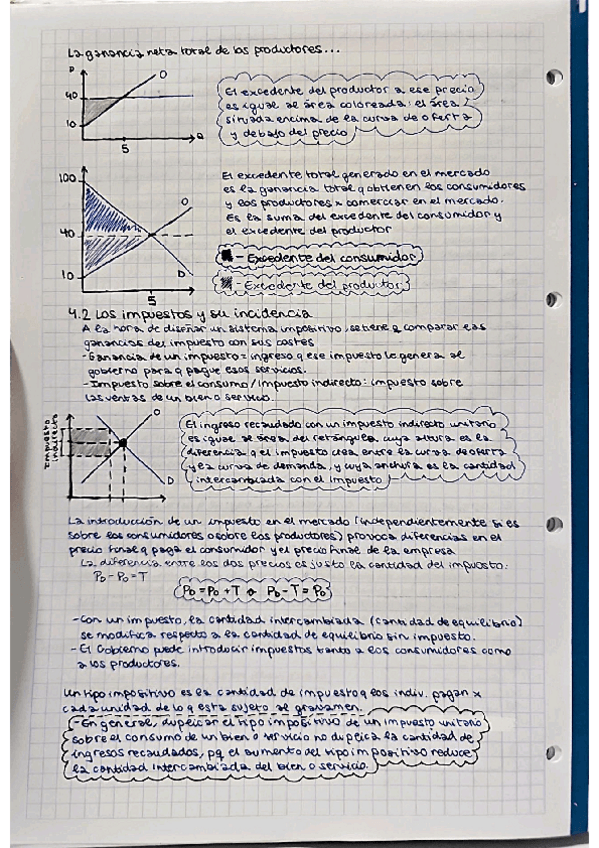 La ganancia neta total de los productores...
P
O
40
10
5
Q
El excedente del productor a ese precio
es igual al área coloreada: el área
situada encima de la curva de oferta
y debajo del precio
100
O
40
10
D
5
El excedente total generado en el mercado
es la ganancia total q obtienen los consumidores
y los productores x comerciar en el mercado.
Es la suma del excedente del consumidor y
el excedente del productor
- Excedente del consumidor
- Excedente del productor
4.2 Los impuestos y su incidencia
A la hora de diseñar un sistema impositivo, se tiene q comparar las
ganancias del impuesto con sus costes
- Ganancia de un impuesto = ingreso q ese impuesto le genera al
gobierno para q pague esos servicios.
- Impuesto sobre el consumo / impuesto indirecto: impuesto sobre
las ventas de un bien o servicio.
Impuesto
indirecto
O
D
El ingreso recaudado con un impuesto indirecto unitario
es igual al área del rectángulo, cuya altura es la
diferencia q el impuesto crea entre la curva de oferta
y la curva de demanda, y cuya anchura es la cantidad
intercambiada con el impuesto
La introducción de un impuesto en el mercado (independientemente si es
sobre los consumidores o sobre los productores) provoca diferencias en el
precio final q paga el consumidor y el precio final de la empresa
La diferencia entre los dos precios es justo la cantidad del impuesto:
PD - PO = T
PD = PO + T ⇒ PD - T = PO
- Con un impuesto, la cantidad intercambiada (cantidad de equilibrio)
se modifica respecto a la cantidad de equilibrio sin impuesto.
- El Gobierno puede introducir impuestos tanto a los consumidores como
a los productores.
Un tipo impositivo es la cantidad de impuesto q los indiv. pagan x
cada unidad de lo q esta sujeto al gravamen.
- En general, duplicar el tipo impositivo de un impuesto unitario
sobre el consumo de un bien o servicio no duplica la cantidad de
ingresos recaudados, pq el aumento del tipo impositivo reduce
la cantidad intercambiada del bien o servicio.